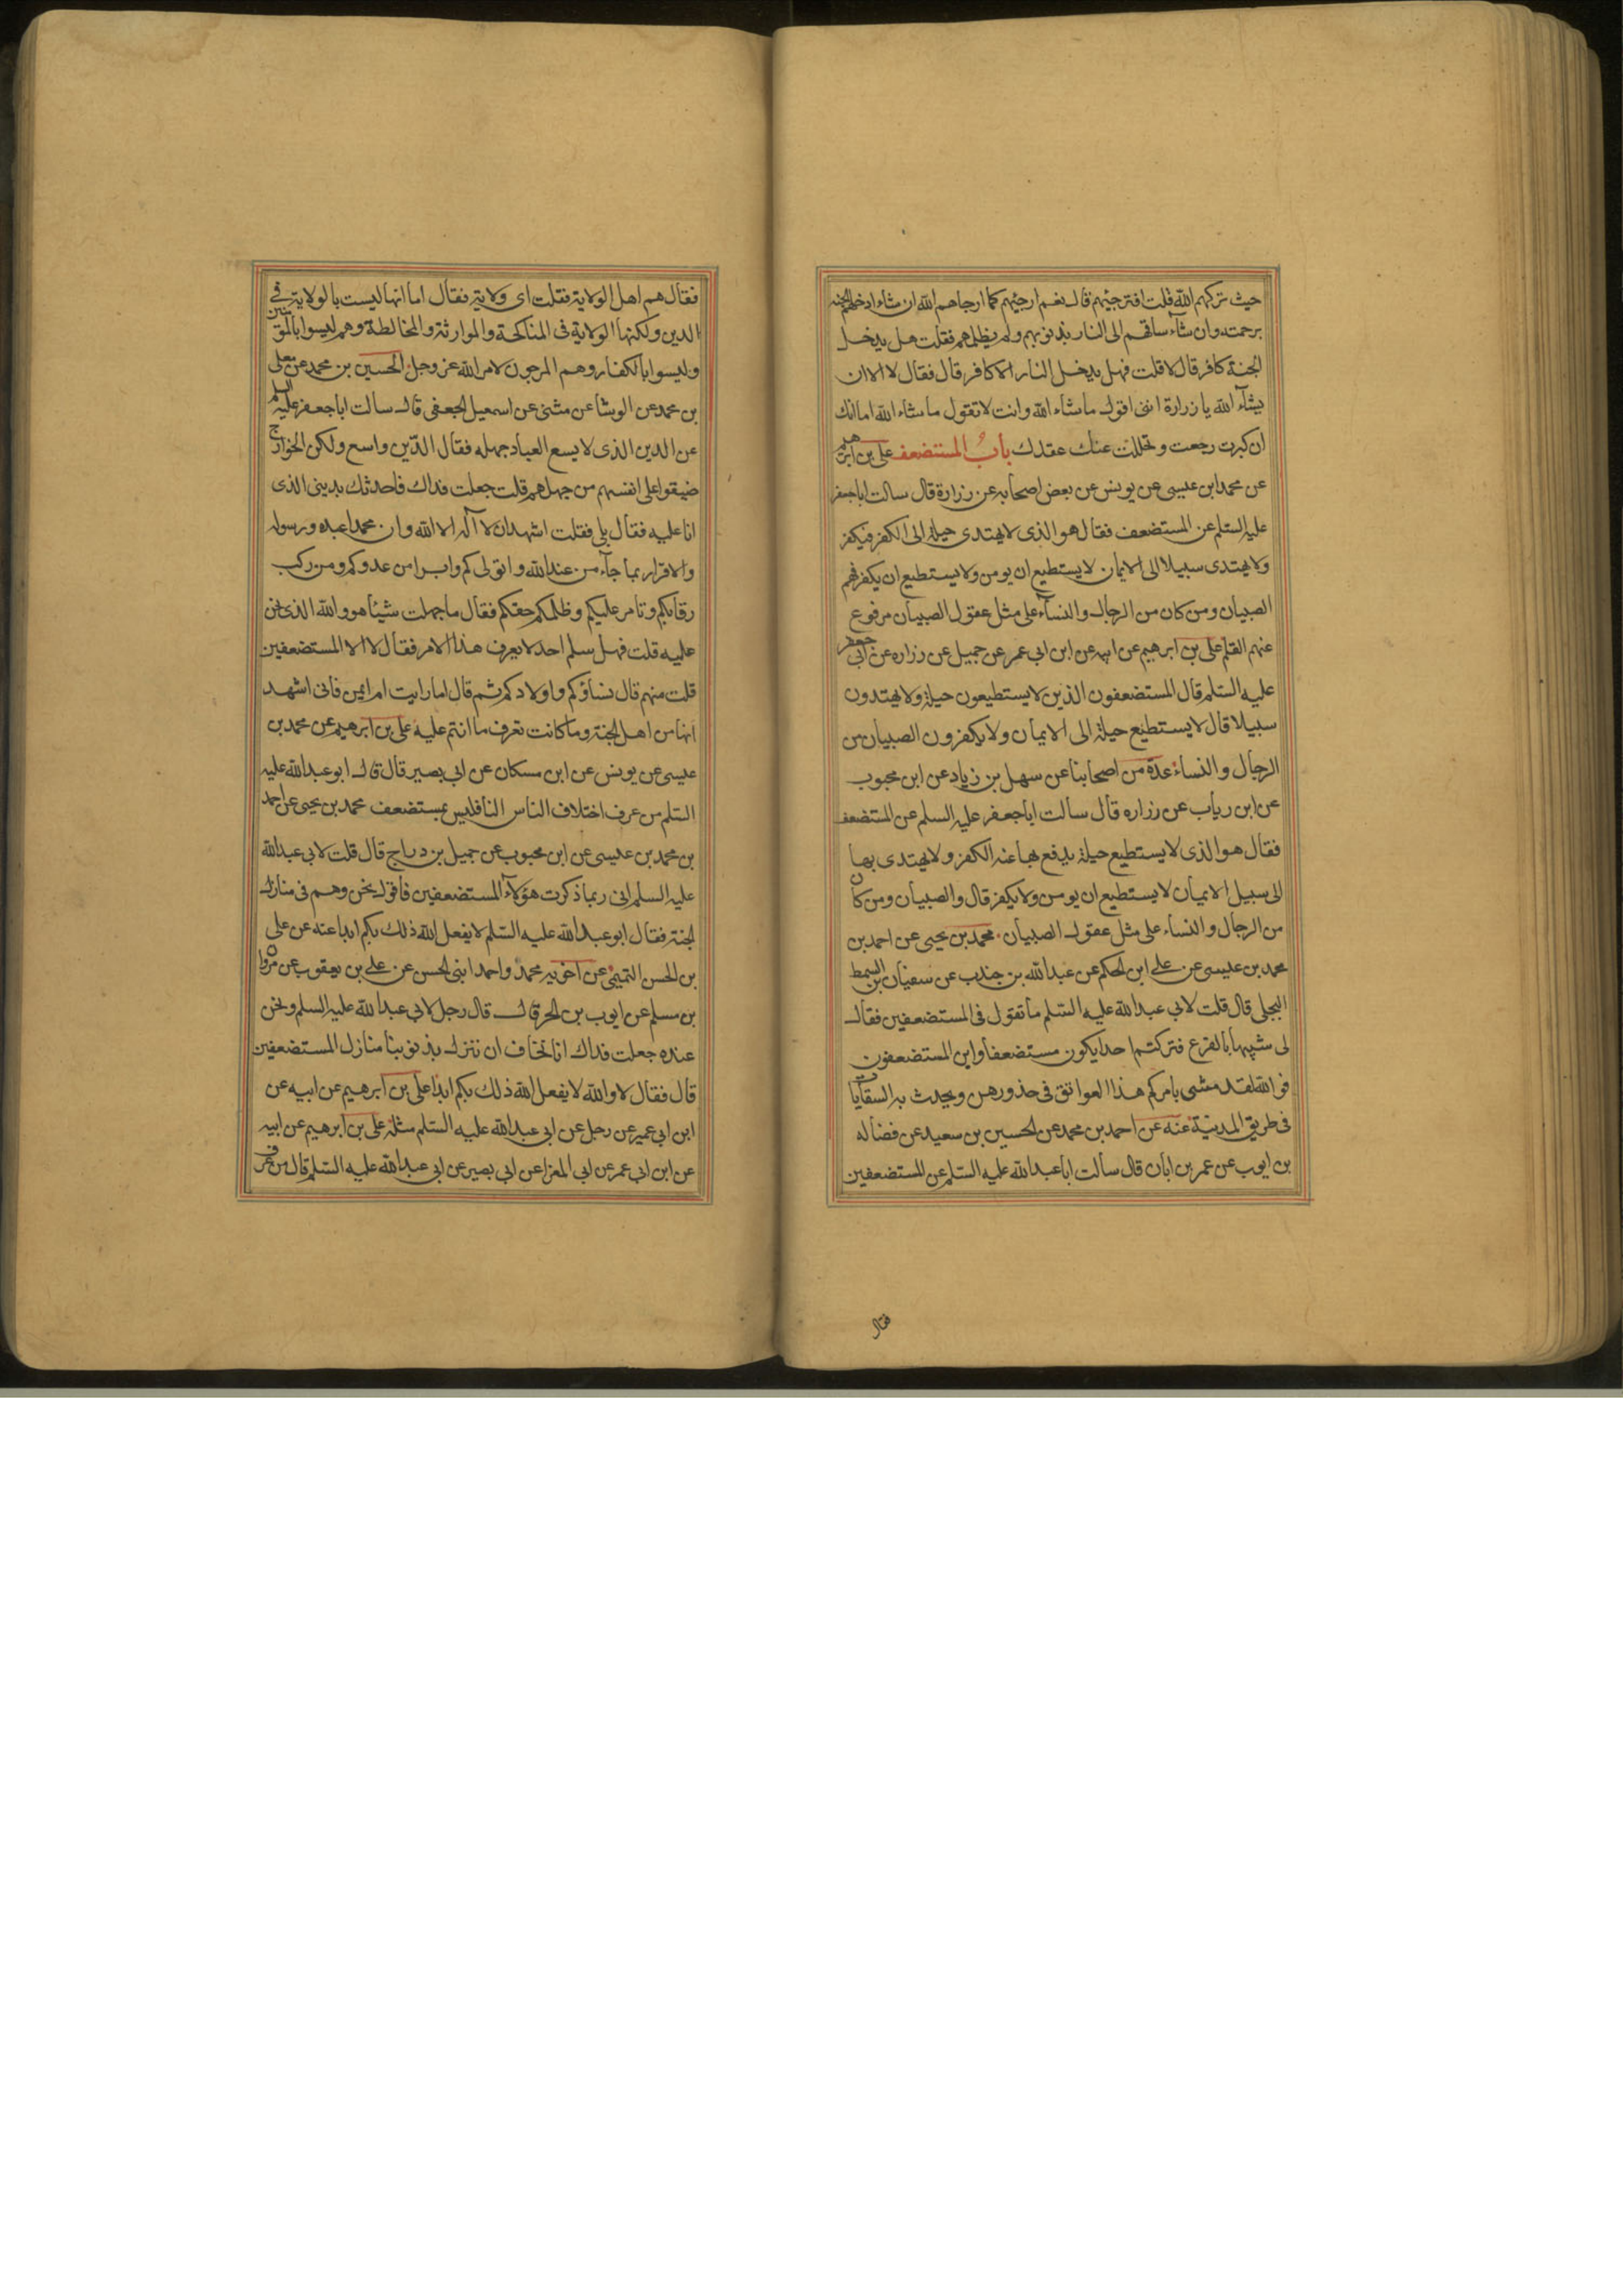 حيث تركهم الله قلت افترجئهم قال نعم ارجئهم كما ارجاهم الله ان شاء ادخلهم الجنة
برحمته وان شاء ساقهم الى النار بذنوبهم ولم يظلمهم فقلت هل يدخل
الجنة كافر قال لا قلت فهل يدخل النار الا كافر قال فقال لا الا ان
يشآء الله يا زرارة اننى اقول ما شاء الله وانت لا تقول ما شاء الله اما انك
ان كبرت رجعت وتحللت عنك عقدك باب المستضعف على بن ابرهيم
عن محمد ابن عيسى عن يونس عن بعض اصحابه عن زرارة قال سالت اباجعفر
عليه السلم عن المستضعف فقال هو الذى لا يهتدى حيلة الى الكفر فيكفر
ولا يهتدى سبيلا الى الايمان لا يستطيع ان يومن ولا يستطيع ان يكفر فهم
الصبيان ومن كان من الرجال والنسآء على مثل عقول الصبيان مرفوع
عنهم القلم على بن ابرهيم عن ابيه عن ابن ابى عمر عن جميل عن زراره عن ابى جعفر
عليه السلم قال المستضعفون الذين لا يستطيعون حيلة ولا يهتدون
سبيلا قال لا يستطيع حيلة الى الايمان ولا يكفرون الصبيان من
الرجال والنساء عدة من اصحابنا عن سهل بن زياد عن ابن محبوب
عن ابن رياب عن زراره قال سالت اباجعفر عليه السلم عن المستضعف
فقال هو الذى لا يستطيع حيلة يدفع بها عنه الكفر ولا يهتدى بها
الى سبيل الايمان لا يستطيع ان يومن ولا يكفر قال والصبيان ومن كان
من الرجال والنساء على مثل عقول الصبيان محمد بن يحيى عن احمد بن
محمد بن عيسى عن على ابن الحكم عن عبد الله بن جندب عن سفيان بن السمط
البجلى قال قلت لابى عبد الله عليه السلم ما تقول فى المستضعفين فقال
لى شبيها بالفزع فتركتم احدا يكون مستضعفا واين المستضعفون
فو الله لقد مشى بامركم هذا العواتق فى خدورهن ويحدث به السقايات
فى طريق المدينة عنه عن احمد بن محمد عن الحسين بن سعيد عن فضاله
بن ايوب عن عمر بن ابان قال سألت اباعبد الله عليه السلم عن المستضعفين
فقال
فقال هم اهل الولاية فقلت اى ولاية فقال اما انها ليست بالولاية فى
الدين ولكنها الولاية فى المناكحة والموارثة والمخالطة وهم ليسوا بالمؤمنين
وليسوا بالكفار وهم المرجون لامر الله عز وجل الحسين بن محمد عن معلى
بن محمد عن الوشا عن مثنى عن اسمعيل الجعفى قال سالت اباجعفر عليه السلم
عن الدين الذى لا يسع العباد جهله فقال الدين واسع ولكن الخوارج
ضيقوا على انفسهم من جهلهم قلت جعلت فداك فاحدثك بدينى الذى
انا عليه فقال بلى فقلت اشهد ان لا اله الا الله وان محمدا عبده ورسوله
والاقرار بما جآء من عند الله واتولاكم وابرا من عدوكم ومن ركب
رقابكم وتامر عليكم وظلمكم حقكم فقال ما جهلت شيئا هو والله الذى نحن
عليه قلت فهل سلم احد لا يعرف هذا الامر فقال لا الا المستضعفين
قلت منهم قال نساؤكم واولادكم ثم قال اما رايت ام ايمن فانى اشهد
انها من اهل الجنة وما كانت تعرف ما انتم عليه على بن ابرهيم عن محمد بن
عيسى عن يونس عن ابن مسكان عن ابى بصير قال قال ابو عبد الله عليه
السلم من عرف اختلاف الناس فليس بمستضعف محمد بن يحيى عن احمد
بن محمد بن عيسى عن ابن محبوب عن جميل بن دراج قال قلت لابى عبد الله
عليه السلم انى ربما ذكرت هؤلآء المستضعفين فاقول نحن وهم فى منازل
الجنة فقال ابو عبد الله عليه السلم لا يفعل الله ذلك بكم ابدا عنه عن على
بن الحسن التميمى عن اخويه محمد واحمد ابنى الحسن عن على بن يعقوب عن مروان
بن مسلم عن ايوب بن الحر قال قال رجل لابى عبد الله عليه السلم ونحن
عنده جعلت فداك انا نخاف ان ننزل بذنوبنا منازل المستضعفين
قال فقال لا والله لا يفعل الله ذلك بكم ابدا على بن ابرهيم عن ابيه عن
ابن ابى عمير عن رجل عن ابى عبد الله عليه السلم مثله على بن ابرهيم عن ابيه
عن ابن ابى عمر عن ابى المغرا عن ابى بصير عن ابى عبد الله عليه السلم قال من عرف